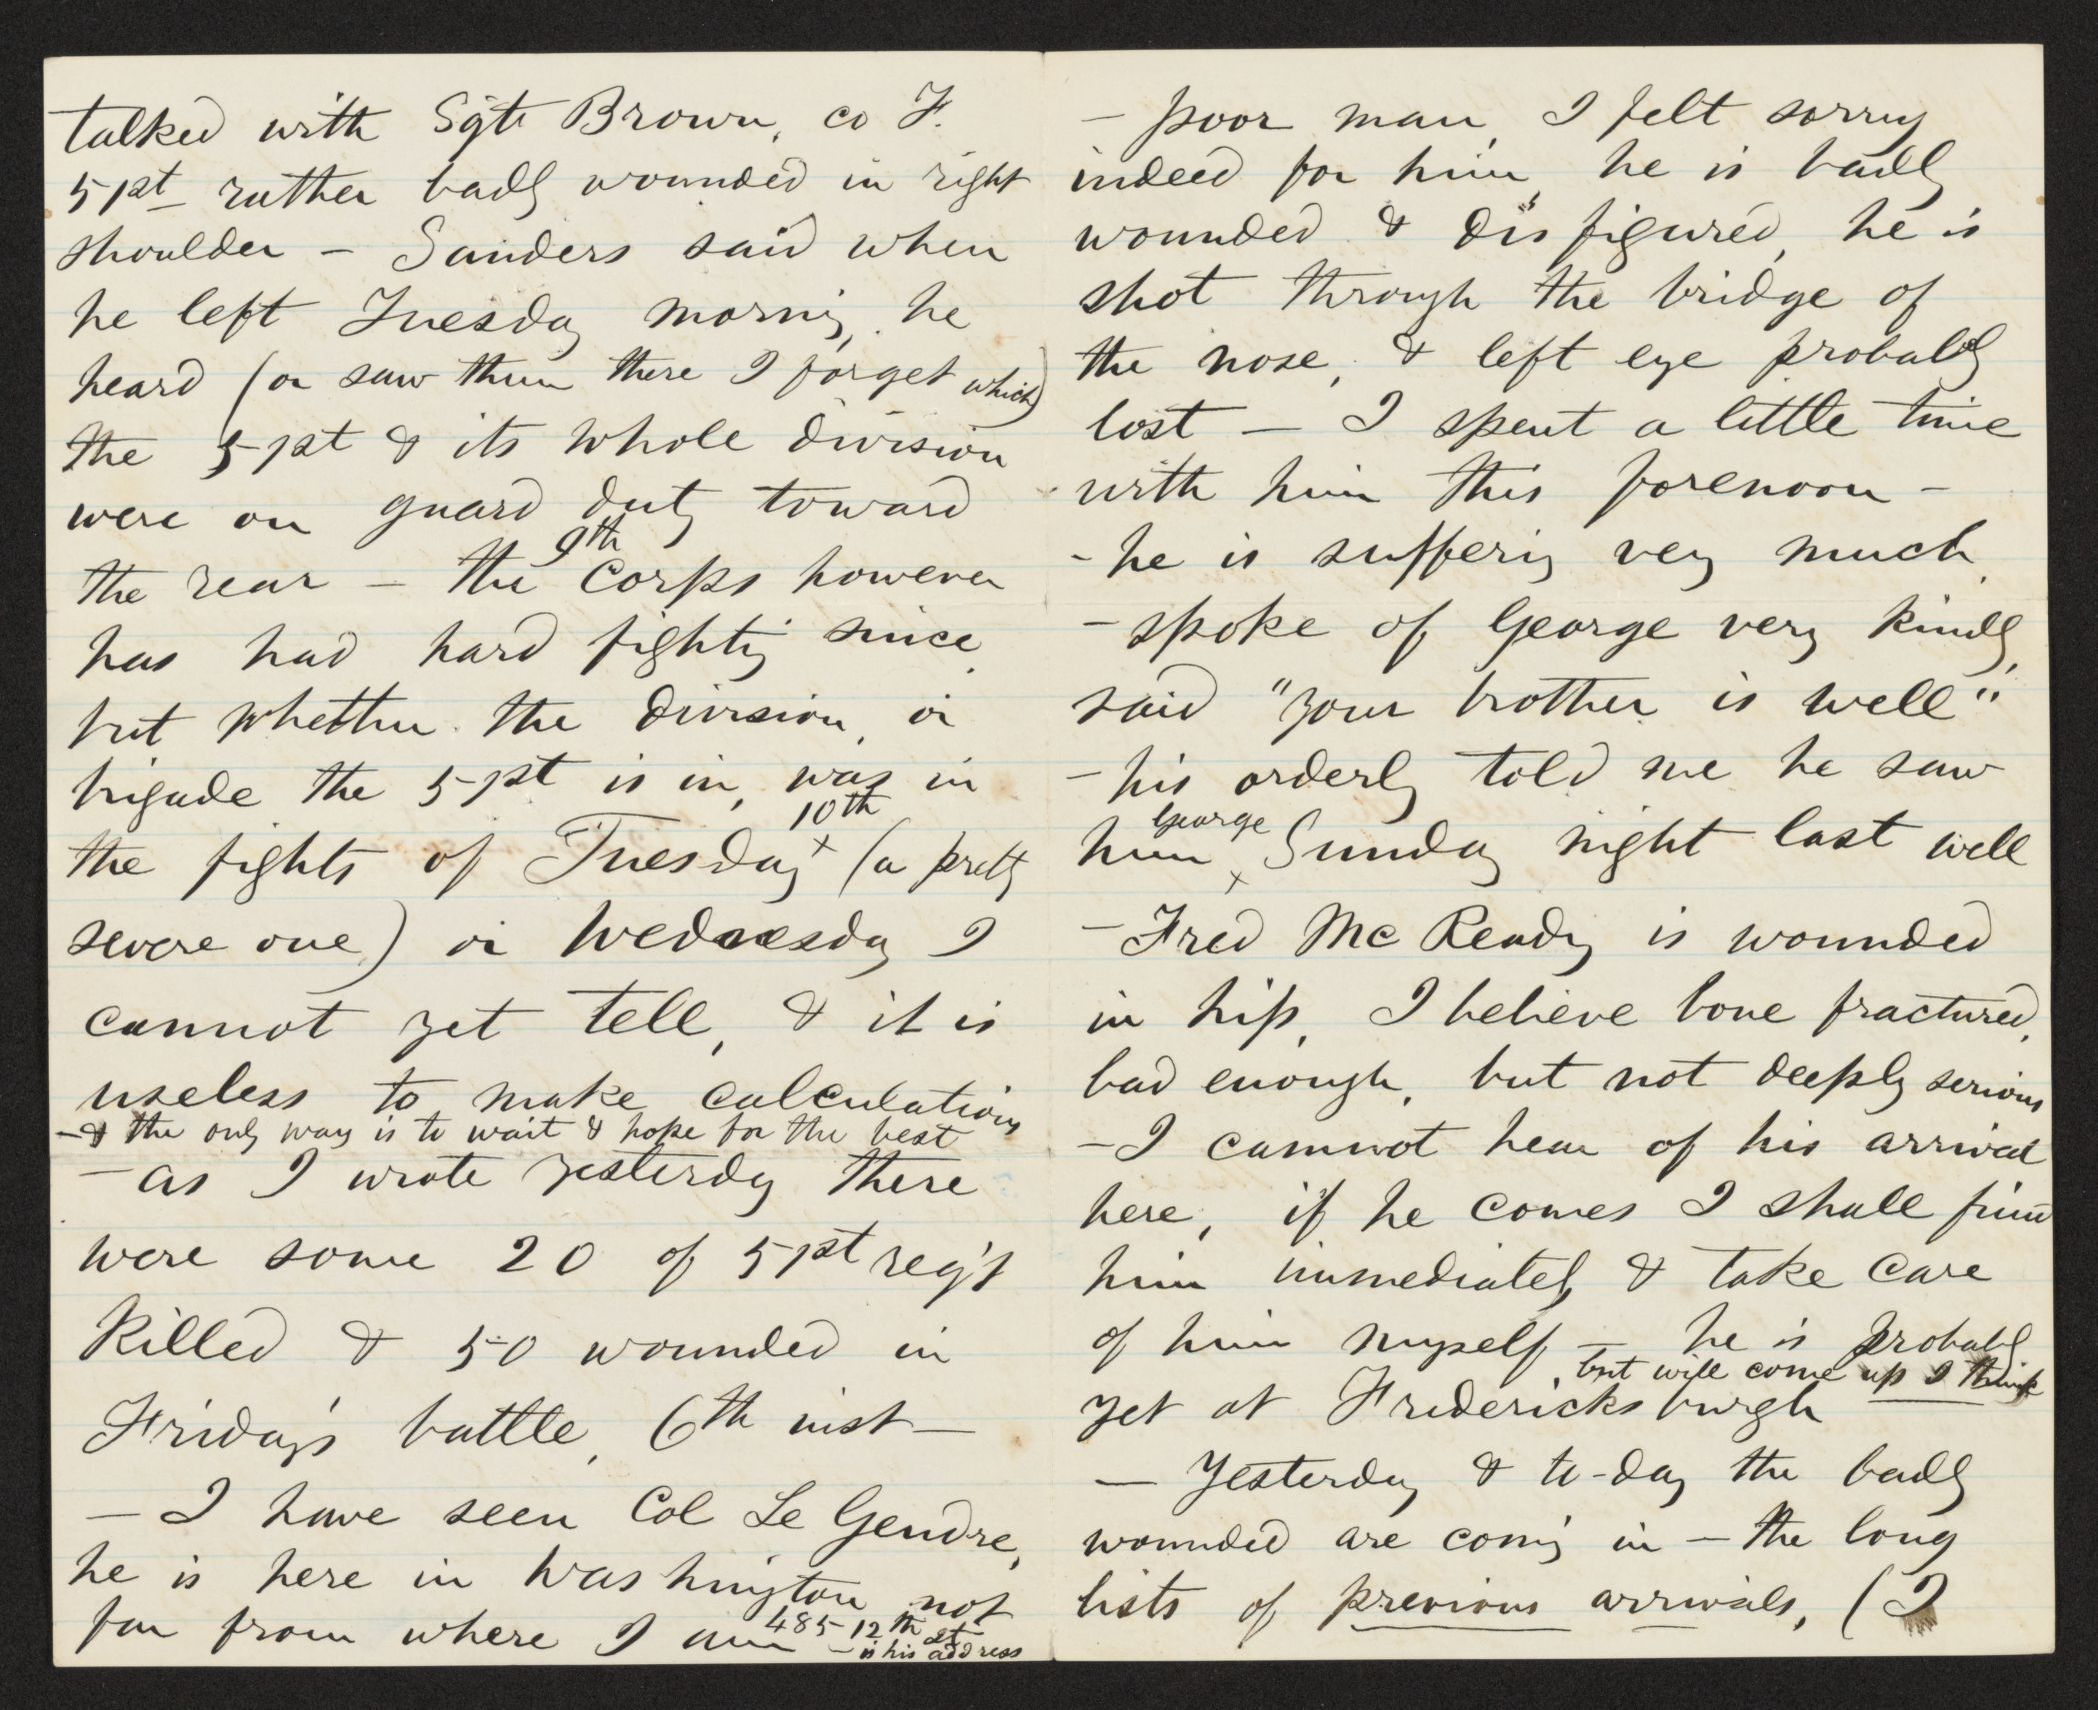 talked with Sgt Brown, co F.
51st rather badly wounded in right
shoulder – Sanders said when
he left Tuesday morning, he
heard (or saw them there I forget which)
the 51st & its whole division
were on guard duty toward
9th
the rear – the Corps however
has had hard fighting since,
but whether the division, or
brigade the 51st is in, was in
10th
the fights of Tuesday x (a pretty
severe one) or Wednesday I
cannot yet tell, & it is
useless to make calculations
– & the only way is to wait & hope for the best
– as I wrote yesterday there
were some 20 of 51st reg't
killed & 50 wounded in
Friday's battle, 6th inst –
– I have seen Col Le Gendre,
he is here in Washington not
far from where I am 485 12th st
– is his address
– poor man, I felt sorry
indeed for him, he is badly
wounded & disfigured, he is
shot through the bridge of
the nose, & left eye probably
lost – I spent a little time
with him this forenoon –
– he is suffering very much,
– spoke of George very kindly,
said "your brother is well"
– his orderly told me he saw
George
him x Sunday night last well
– Fred McReady is wounded
in hip, I believe bone fractured,
bad enough, but not deeply serious
– I cannot hear of his arrival
here, if he comes I shall find
him immediately & take care
of him myself – he is probably
, but will come up I think
yet at Fredericksburgh
– Yesterday & to-day the badly
wounded are coming in – the long
lists of previous arrivals, (I